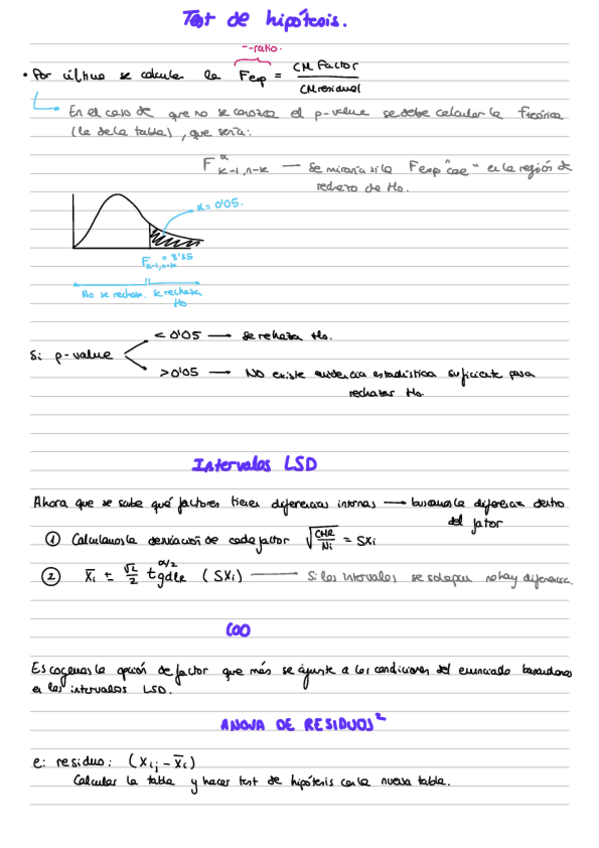 Test de hipótesis.
F-ratio.
• Por último se calcula la Fexp = CM Factor / CM residual
En el caso de que no se conozca el p-value se debe calcular la Fteórica
(la de la tabla), que sería:
F^α_{k-1, n-k} — Se miraría si la Fexp "cae" en la región de
rechazo de Ho.
α = 0'05.
F_{k-1, n-k} = 3'35
No se rechaza. Se rechaza
Ho
< 0'05 → se rechaza Ho.
Si p-value
> 0'05 → NO existe evidencia estadística suficiente para
rechazar Ho.
Intervalos LSD
Ahora que se sabe qué factores tienen diferencias internas → buscamos la diferencia dentro
del factor
① Calculamos la desviación de cada factor √(CMR/Ni) = Sxi
② X̄i ± √2/2 t^{α/2}_{gdlR} (Sxi) — Si los intervalos se solapan no hay diferencia.
COO
Escogemos la opción de factor que más se ajuste a las condiciones del enunciado basándonos
en los intervalos LSD.
ANOVA DE RESIDUOS²
e: residuo: (Xij - X̄i)
Calcular la tabla y haces test de hipótesis con la nueva tabla.